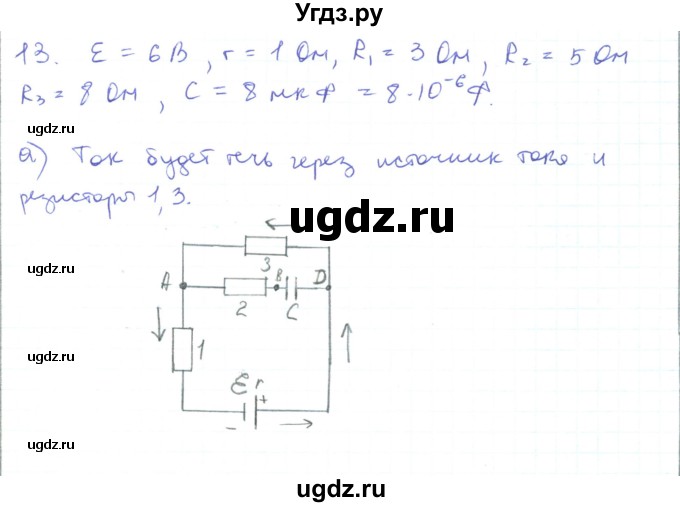 Угдз.ру
13. E = 6 В, r = 1 Ом, R₁ = 3 Ом, R₂ = 5 Ом
R₃ = 8 Ом, C = 8 мкФ = 8·10⁻⁶ Ф.
ugdz.ru
а) Ток будет течь через источник тока и
ugdz.ru
резисторы 1, 3.
ugdz.ru
ugdz.ru
3
A
B
D
2
C
1
ugdz.ru
Ɛ r
+
−
ugdz.ru
ugdz.ru